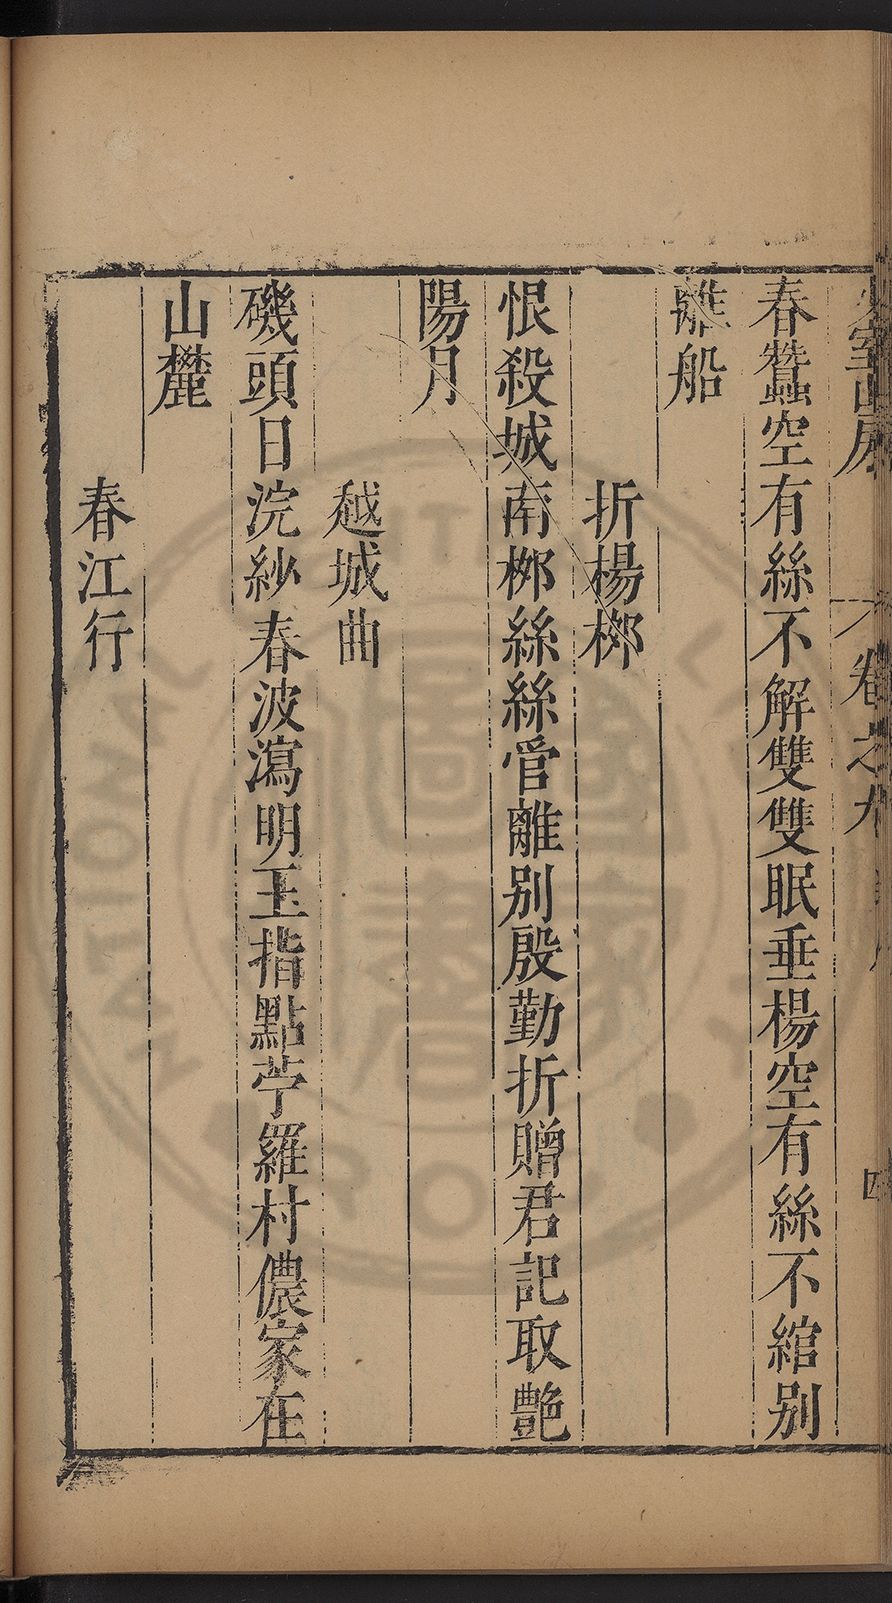 少室山房　卷之九　四
春蠶空有絲不解雙雙眠垂楊空有絲不綰別
離船
折楊桺
恨殺城南桺絲絲管離別殷勤折贈君記取艷
陽月
越城曲
磯頭日浣紗春波瀉明玉指點苧羅村儂家在
山麓
春江行